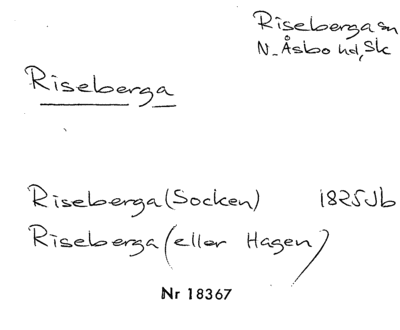 Riseberga sn
N. Åsbo hd, Sk
Riseberga
Riseberga (Socken) 1825 Jb
Riseberga (eller Hagen)
Nr 18367